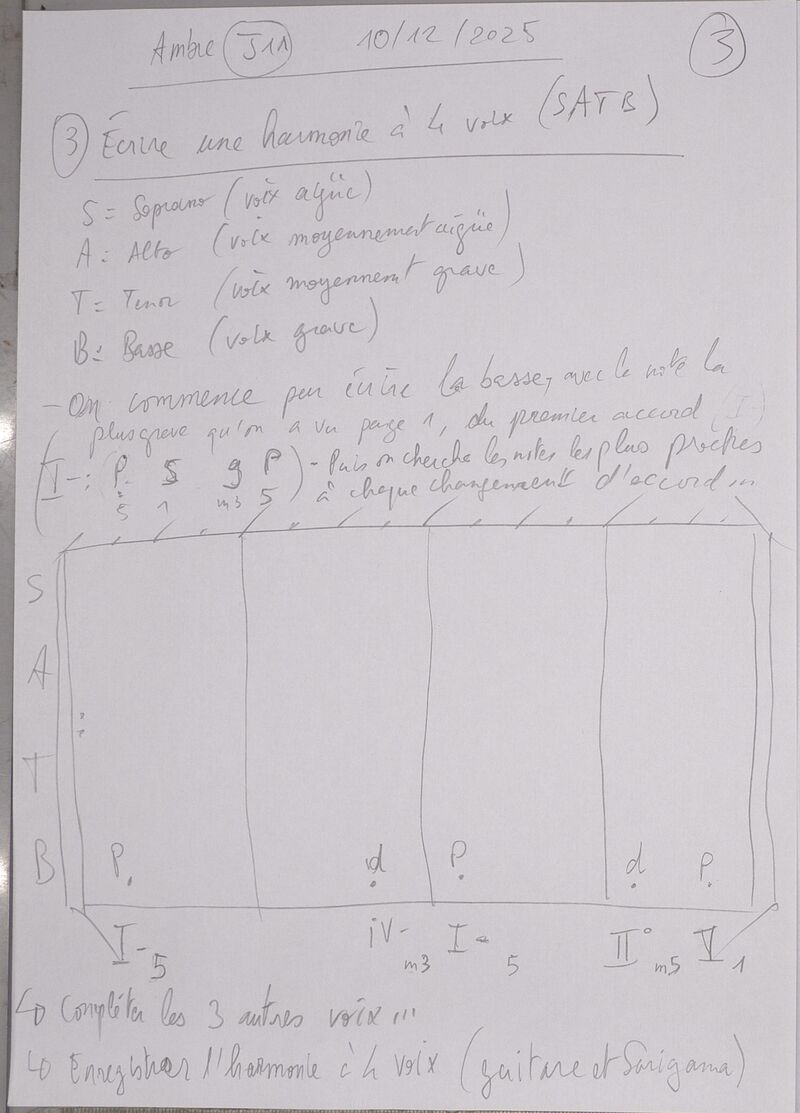 Ambre J11 10/12/2025 3
3 Écrire une harmonie à 4 voix (SATB)
S = Soprano (voix aigüe)
A = Alto (voix moyennement aigüe)
T = Tenor (voix moyennement grave)
B = Basse (voix grave)
- On commence par écrire la basse, avec la note la
plus grave qu'on a vu page 1, du premier accord (I-)
(I- : (P S g P) - Puis on cherche les notes les plus proches
5 1 m3 5 à chaque changement d'accord ...
S
A
T
B P d P d P
I- 5 iv- m3 I- 5 II° m5 V 1
↳ Compléter les 3 autres voix ...
↳ Enregistrer l'harmonie à 4 voix (guitare et Sarigama)